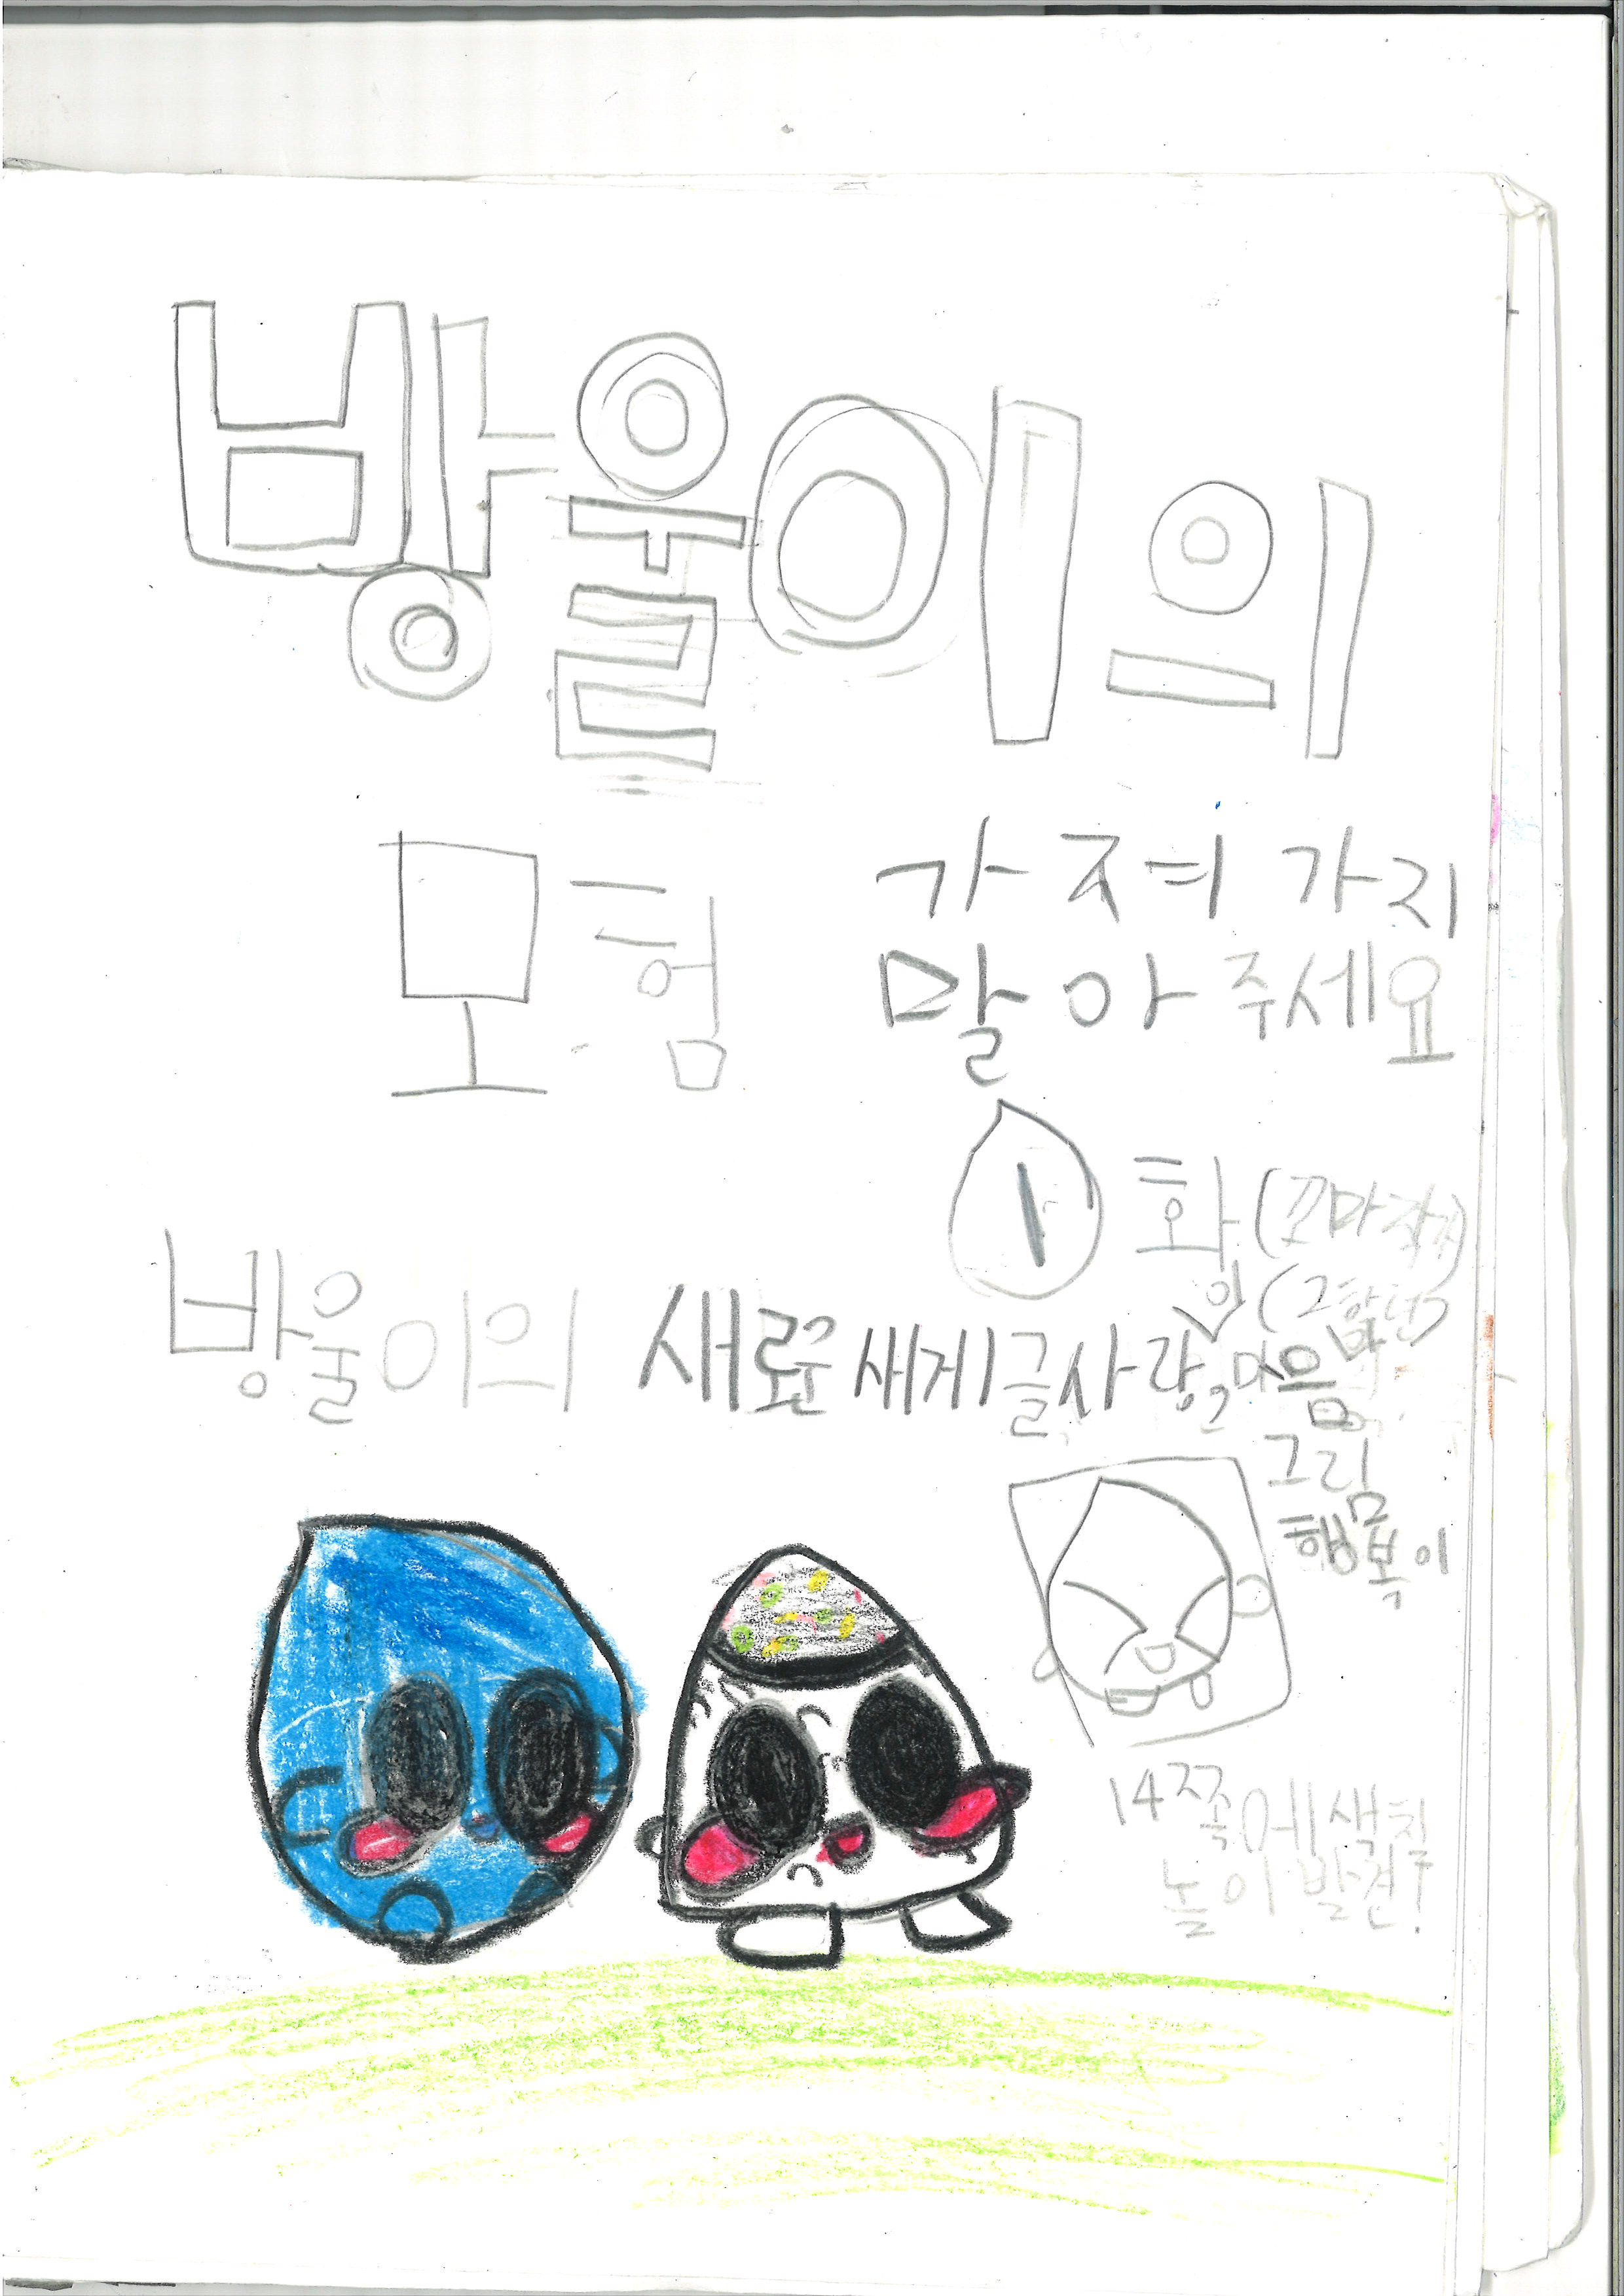 방울이의
모험
가져가지
말아주세요
1화 (꼬마작가)
인 (2학년)
방울이의 새로운 새게 글 사랑, 마음
그림
행복이
14쪽에 색칠
놀이 발견!